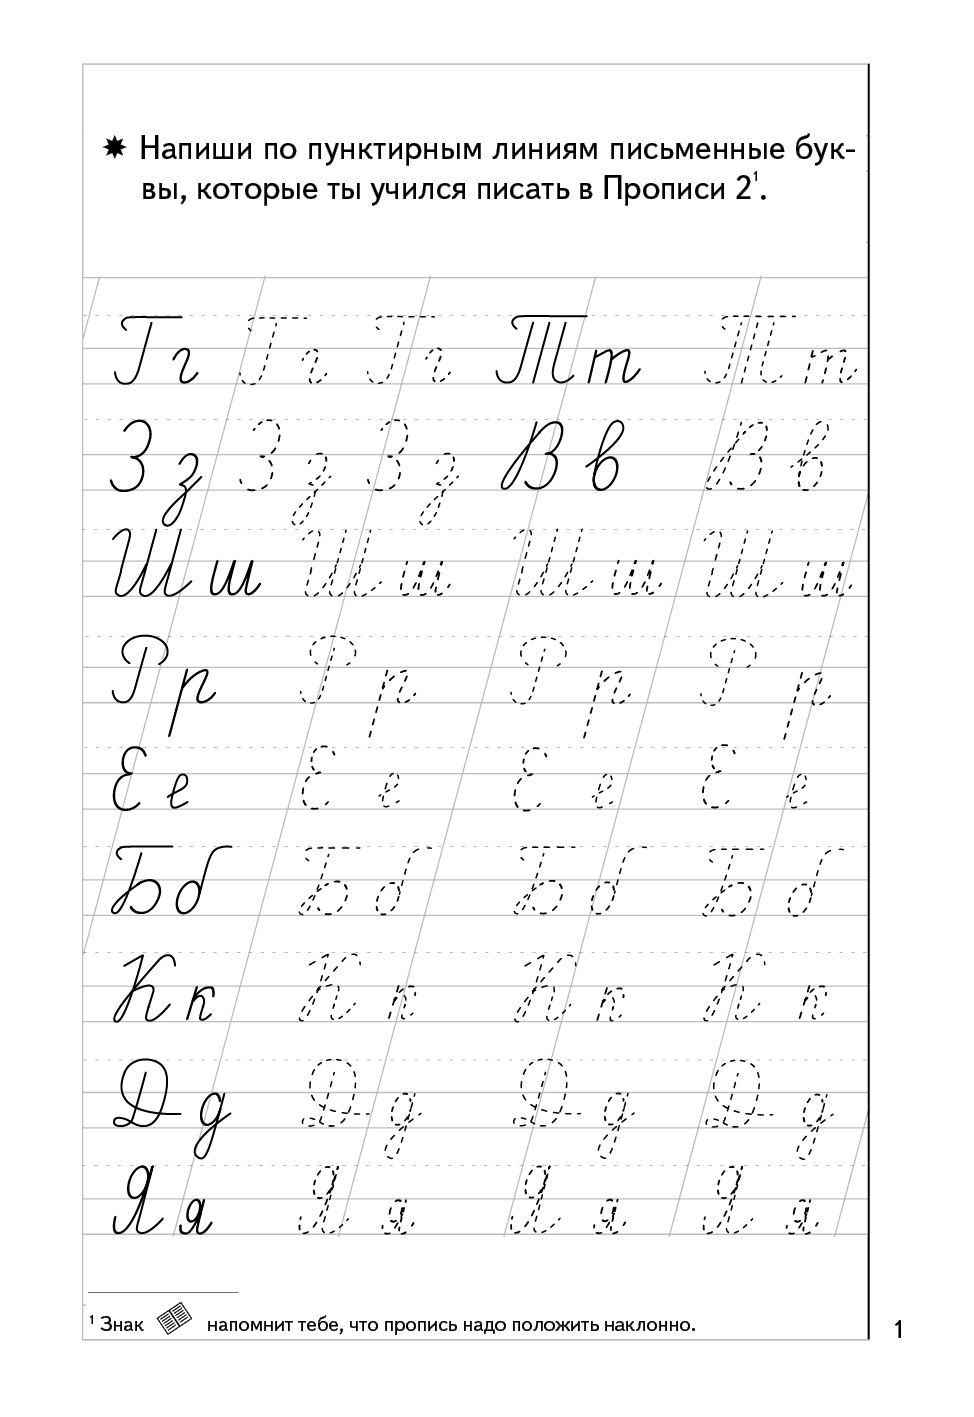 ✷ Напиши по пунктирным линиям письменные бук-
вы, которые ты учился писать в Прописи 2¹.
Гг Гг Гг Тт Тт
Зз Зз Зз Вв Вв
Шш Шш Шш Шш
Рр Рр Рр Рр
Ее Ее Ее Ее
Бб Бб Бб Бб
Кк Кк Кк Кк
Дд Дд Дд Дд
Яя Яя Яя Яя
¹ Знак напомнит тебе, что пропись надо положить наклонно.
1